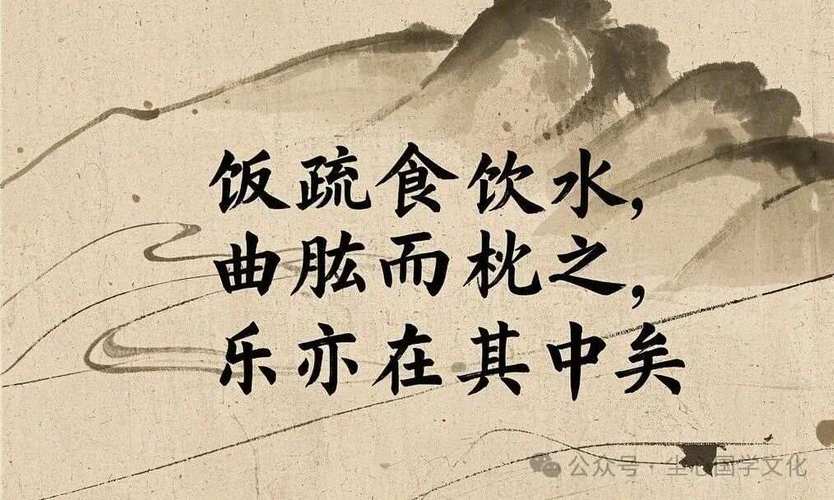 饭疏食饮水,
曲肱而枕之,
乐亦在其中矣
公众号·生心国学文化